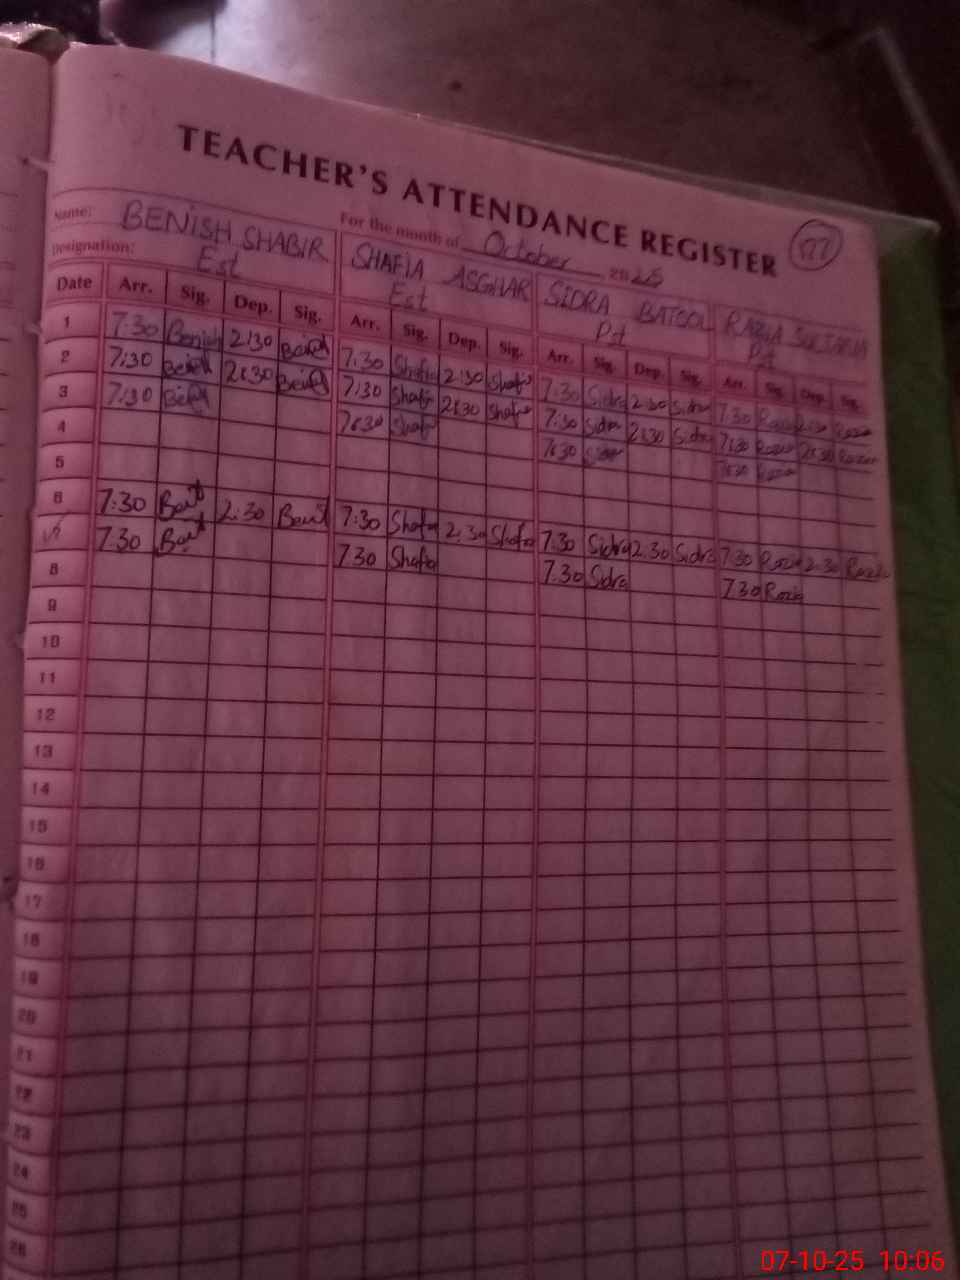 TEACHER'S ATTENDANCE REGISTER 177
For the month of October 2025
Name: BENISH SHABIR SHAFIA ASGHAR SIDRA BATOOL RAZIA SULTANA
Designation: Est Est Pst Pst
Date Arr. Sig. Dep. Sig. Arr. Sig. Dep. Sig. Arr. Sig. Dep. Sig. Arr. Sig. Dep. Sig.
1 7:30 Benish 2:30 7:30 Shafia 2:30 Shafia 7:30 Sidra 2:30 Sidra 7:30 Razia 2:30 Razia
2 7:30 2:30 7:30 Shafia 2:30 Shafia 7:30 Sidra 2:30 Sidra 7:30 Razia 2:30 Razia
3 7:30 7:30 Shafia 7:30 Sidra 7:30 Razia
4
5
6 7:30 2:30 7:30 Shafia 2:30 Shafia 7:30 Sidra 2:30 Sidra 7:30 Razia 2:30 Razia
7 7:30 7:30 Shafia 7:30 Sidra 7:30 Razia
8
9
10
11
12
13
14
15
16
17
18
19
20
21
22
23
24
25
26
07-10-25 10:06